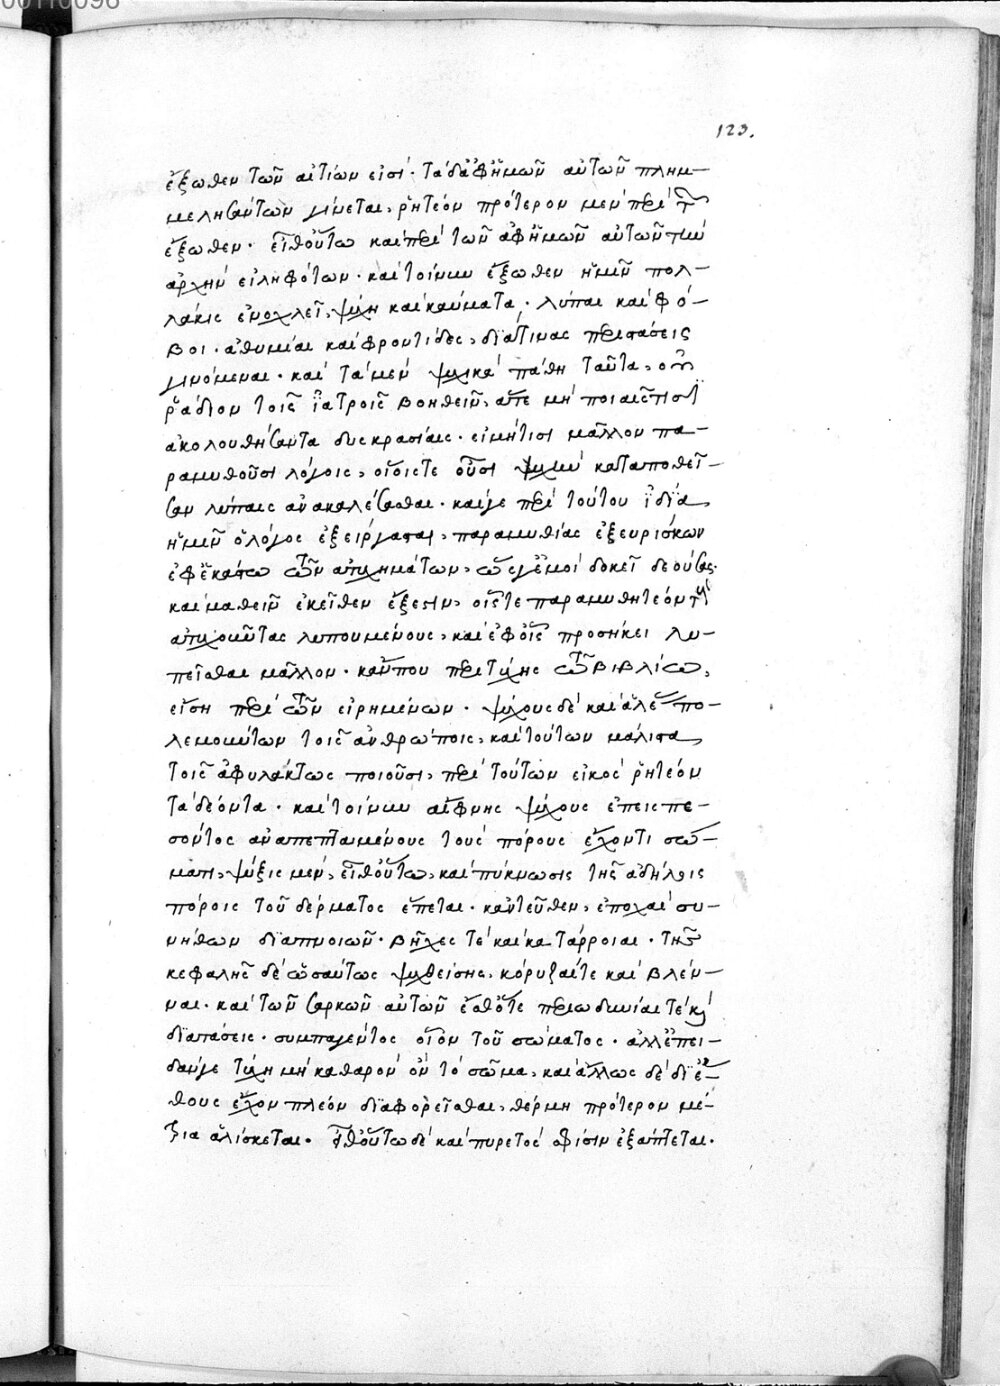 00110096
123.
ἔξωθεν τῶν αἰτίων εἰσί· τὰ δ' ἀφ' ἡμῶν αὐτῶν πλημ-
μελησάντων γίνεται, ῥητέον πρότερον μὲν περὶ τῶν
ἔξωθεν· εἶθ' οὕτω καὶ περὶ τῶν ἀφ' ἡμῶν αὐτῶν τὴν
ἀρχὴν εἰληφότων· καὶ τοίνυν ἔξωθεν ἡμῖν πολ-
λάκις ἐνοχλεῖ, ψύχη καὶ καύματα, λύπαι καὶ φό-
βοι· ἀθυμίαι καὶ φροντίδες, διά τινας περιστάσεις
γινόμεναι· καὶ τὰ μὲν ψυχικὰ πάθη ταῦτα, οὐ
ῥάδιον τοῖς ἰατροῖς βοηθεῖν, ἅτε μὴ ποιαῖς τισὶν
ἀκολουθήσαντα δυσκρασίαις· εἰ μή τισι μᾶλλον πα-
ραμυθοῦσι λόγοις, οἵοις τε οὖσι ψυχὴν καταποθεῖ-
σαν λύπαις ἀνακαλέσασθαι· καί γε περὶ τούτου ἰδίᾳ
ἡμῖν ὁ λόγος ἐξείργασται, παραμυθίας ἐξευρίσκων
ἐφ' ἑκάστῳ τῶν ἀτυχημάτων, ὥς γ' ἐμοὶ δοκεῖ δεούσας·
καὶ μαθεῖν ἐκεῖθεν ἔξεστιν, οἷς τε παραμυθητέον τοὺς
ἀτυχοῦντας λυπουμένους, καὶ ἐφ' οἷς προσήκει λυ-
πεῖσθαι μᾶλλον· κἄν που περὶ τύχης τῷ βιβλίῳ,
εἴση περὶ τῶν εἰρημένων· ψύχους δὲ καὶ ἀλέας πο-
λεμούντων τοῖς ἀνθρώποις, καὶ τούτων μάλιστα
τοῖς ἀφυλάκτως ποιοῦσι, περὶ τούτων εἰκὸς ῥητέον
τὰ δέοντα· καὶ τοίνυν αἴφνης ψύχους ἐπεισπε-
σόντος ἀναπεπταμένους τοὺς πόρους ἔχοντι σώ-
ματι, ψύξις μὲν, εἶθ' οὕτω, καὶ πύκνωσις τῆς ἀδήλοις
πόροις τοῦ δέρματος ἕπεται· κἀντεῦθεν, ἐποχαὶ συ-
νήθων διαπνοιῶν· βῆχες τὲ καὶ κατάρροιαι· τῆς
κεφαλῆς δὲ ὡσαύτως ψυχθείσης, κόρυζαί τε καὶ βλέν-
ναι· καὶ τῶν σαρκῶν αὐτῶν ἔσθ' ὅτε περιωδυνίαι τὲ καὶ
διατάσεις· συμπαγέντος οἷον τοῦ σώματος· ἀλλ' ἐπει-
δάν γε τύχη μὴ καθαρὸν ὂν τὸ σῶμα, καὶ ἄλλως δὲ δι' ἔ-
θους ἔχον πλέον διαφορεῖσθαι, θέρμη πρότερον μέ-
ζια ἁλίσκεται· εἶθ' οὕτω δὲ καὶ πυρετὸς φισὶν ἐξάπτεται.